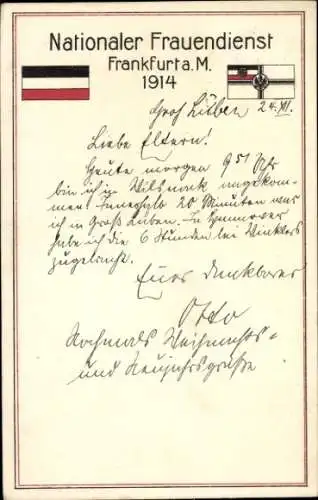 Nationaler Frauendienst
Frankfurt a. M.
1914
Groß Lüben 24. XII.
Liebe Eltern!
Heute morgen 9 51 Uhr
bin ich in Wilsnack angekom-
men. Innerhalb 20 Minuten war
ich in Groß Lüben. In Hannover
habe ich die 6 Stunden bei Winklers
zugebracht.
Euer dankbarer
Otto
Nochmals Weihnachts-
und Neujahrsgrüße